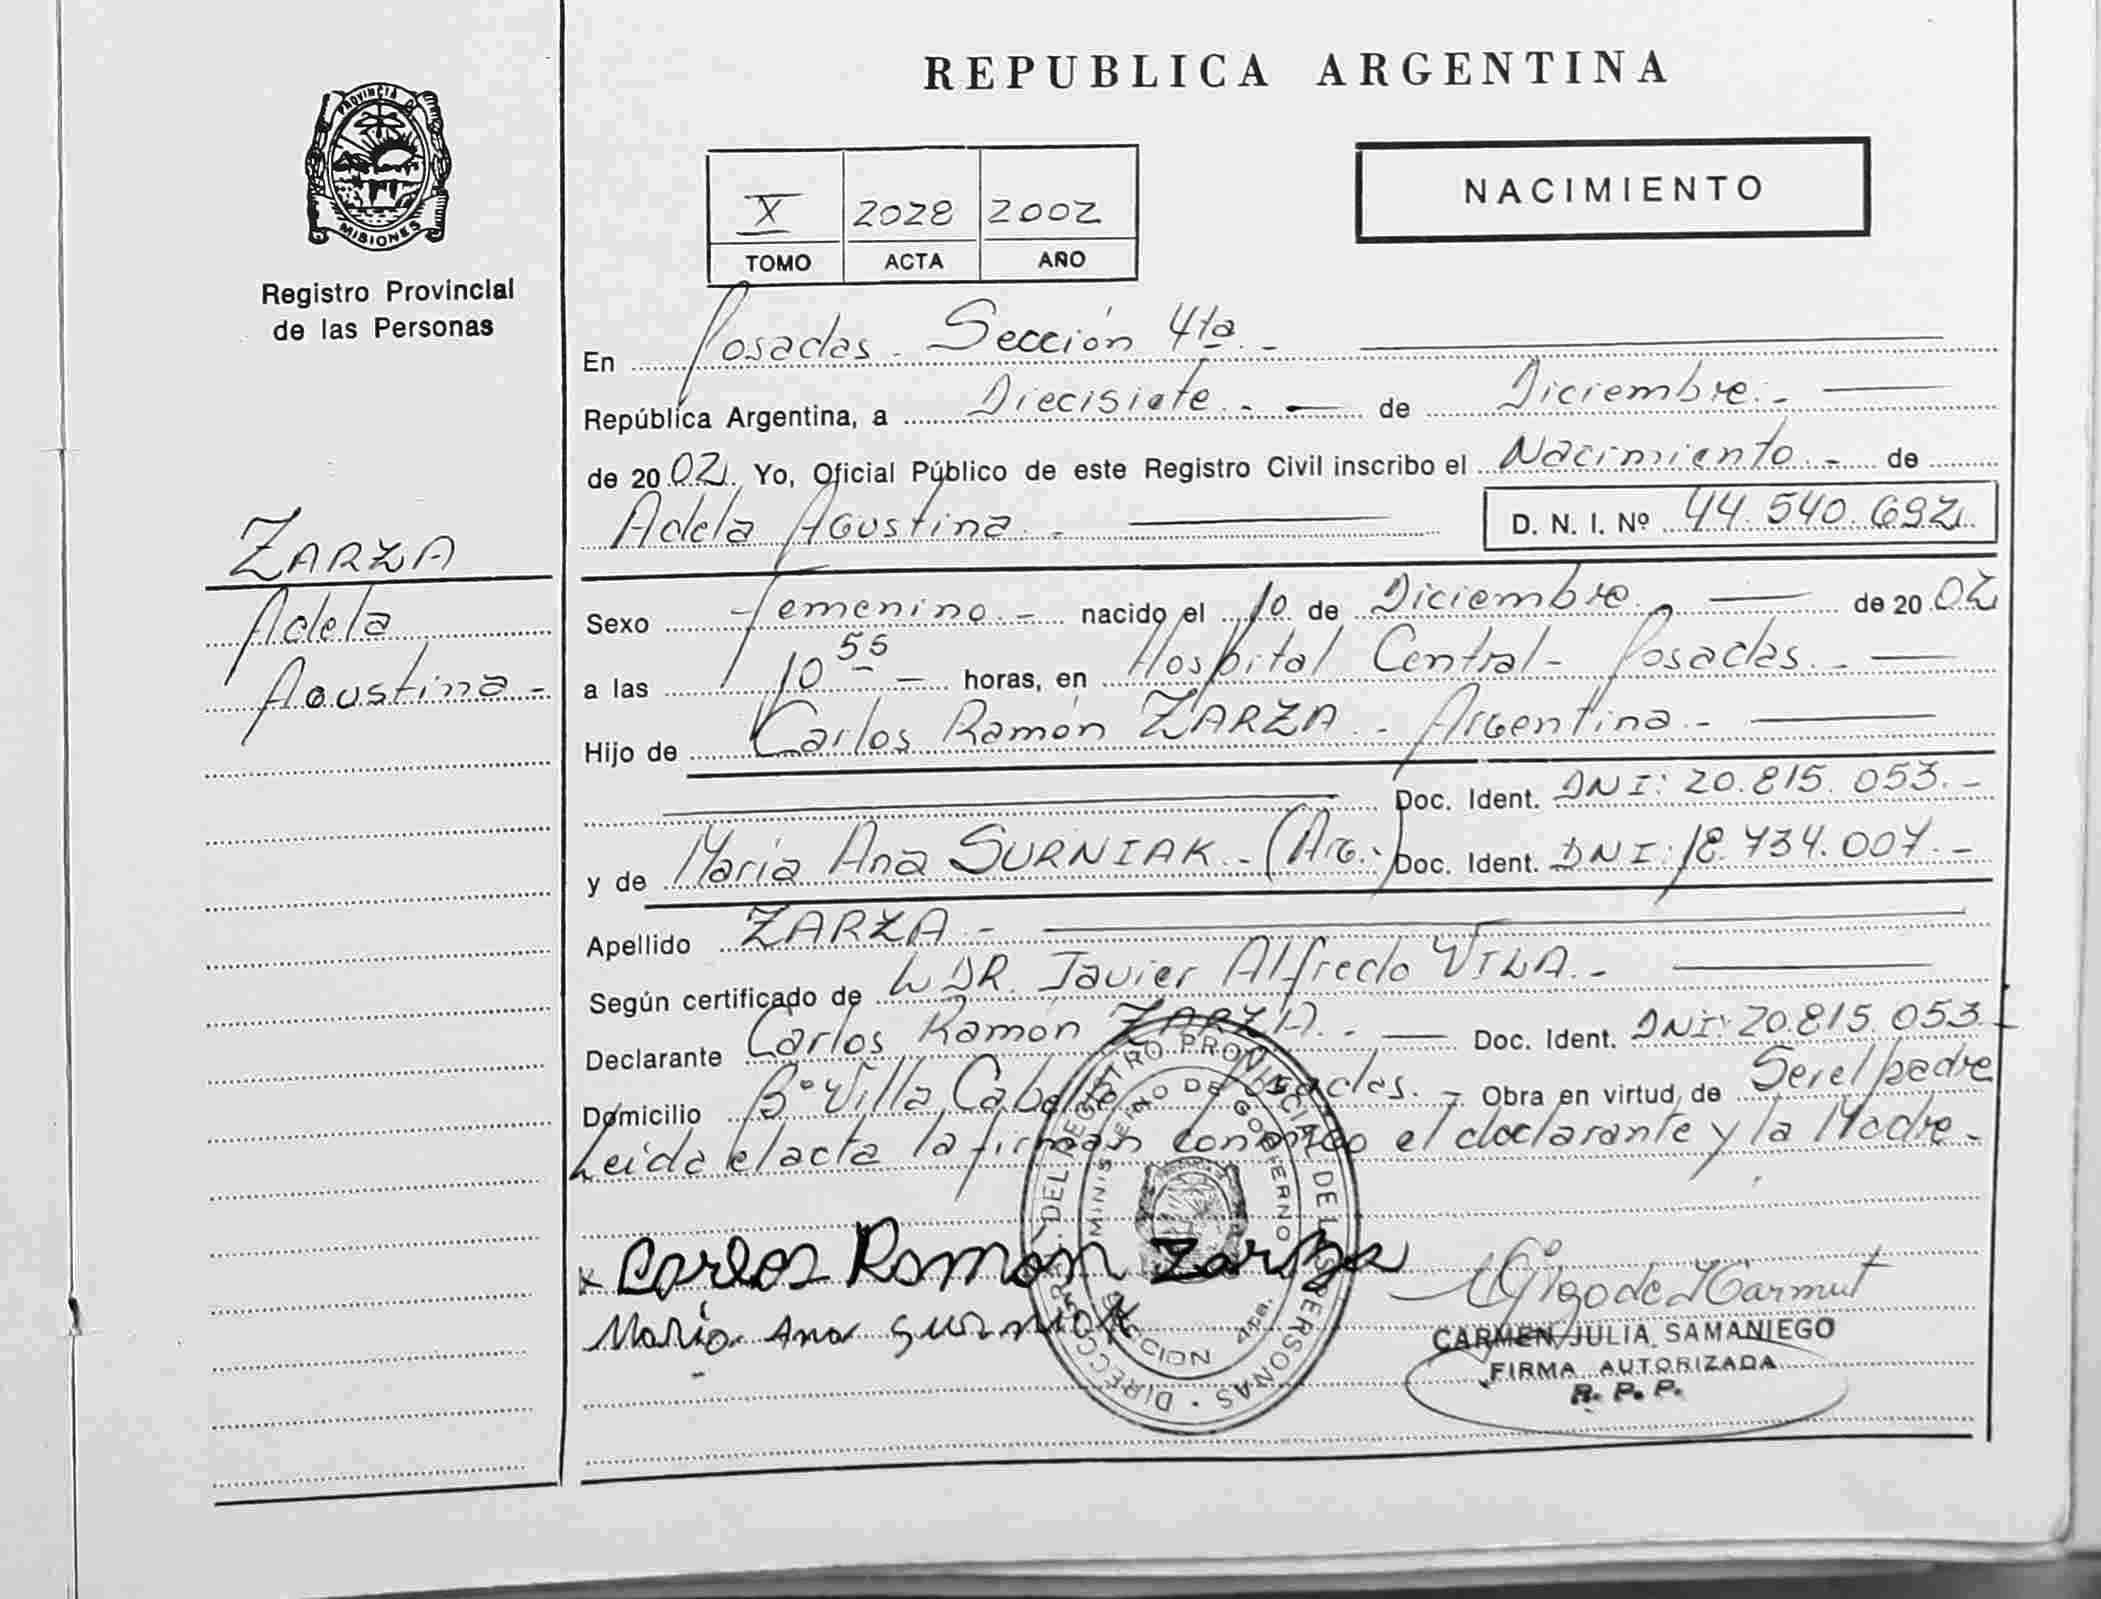 REPUBLICA ARGENTINA
PROVINCIA DE
MISIONES
Registro Provincial
de las Personas
X 2028 2002
TOMO ACTA AÑO
NACIMIENTO
En Posadas - Sección 4ta. -
República Argentina, a Diecisiete. - de Diciembre. -
de 2002 Yo, Oficial Público de este Registro Civil inscribo el Nacimiento. - de
Adela Agustina. - D. N. I. Nº 44.540.692
ZARZA
Adela
Agustina -
Sexo femenino. - nacido el 10 de Diciembre. de 2002
a las 10 55 - horas, en Hospital Central - Posadas. -
Hijo de Carlos Ramón ZARZA. - Argentina. -
Doc. Ident. DNI: 20.815.053. -
y de María Ana SURNIAK. - (Arg.-) Doc. Ident. DNI: 18.734.007. -
Apellido ZARZA. -
Según certificado de DR. Javier Alfredo VILA. -
Declarante Carlos Ramón ZARZA. - Doc. Ident. DNI: 20.815.053. -
Domicilio Bº Villa Cabello Posadas. - Obra en virtud de Ser el padre
Leída el acta la firman conmigo el declarante y la Madre. -
Carlos Ramon Zarza
Maria Ana Surniak
CARMEN JULIA SAMANIEGO
FIRMA AUTORIZADA
R. P. P.
DIRECCION GRAL. DEL REGISTRO PROVINCIAL DE LAS PERSONAS
MINISTERIO DE GOBIERNO
4ta.